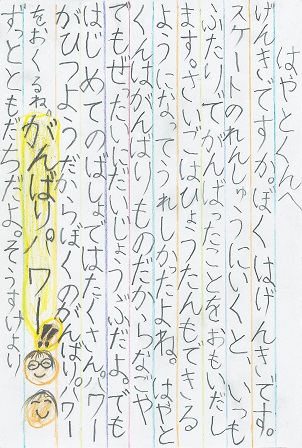 はやとくんへ
げんきですか。ぼくはげんきです。
スケートのれんしゅうにいくと、いつも
ふたりでがんばったことをおもいだし
ます。さいごはひょうたんもできる
ようになってうれしかったよね。はやと
くんはがんばりものだからなごや
でもぜったいだいじょうぶだよ。でも
はじめてのばしょではたくさんパワー
がひつようだからぼくのがんばりパワー
をおくるね。がんばりパワー!!
ずっとともだちだよ。そうすけより